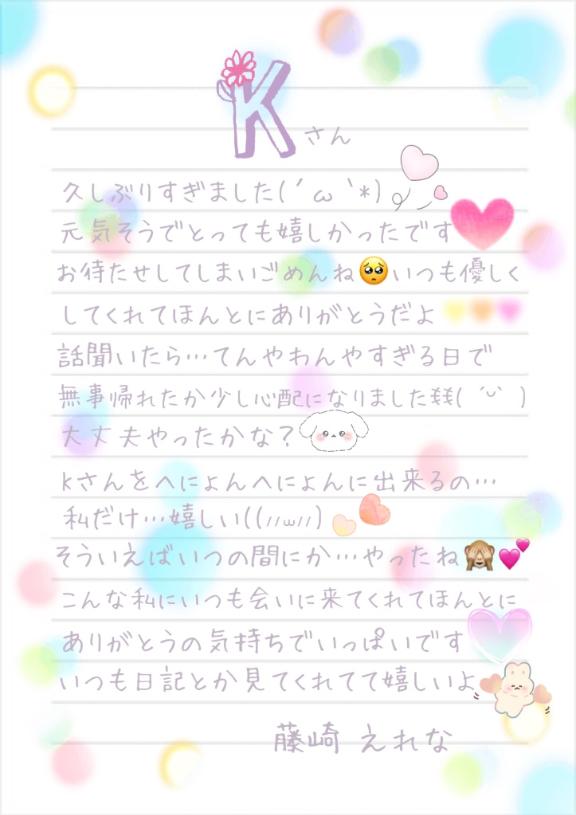 Kさん
久しぶりすぎました(´ω`*)
元気そうでとっても嬉しかったです
お待たせしてしまいごめんね🥺いつも優しく
してくれてほんとにありがとうだよ
話聞いたら…てんやわんやすぎる日で
無事帰れたか少し心配になりました
大丈夫やったかな?
Kさんをへにょんへにょんに出来るの…
私だけ…嬉しい((//ω//)
そういえばいつの間にか…やったね🙈💕
こんな私にいつも会いに来てくれてほんとに
ありがとうの気持ちでいっぱいです
いつも日記とか見てくれてて嬉しいよ
藤崎 えれな